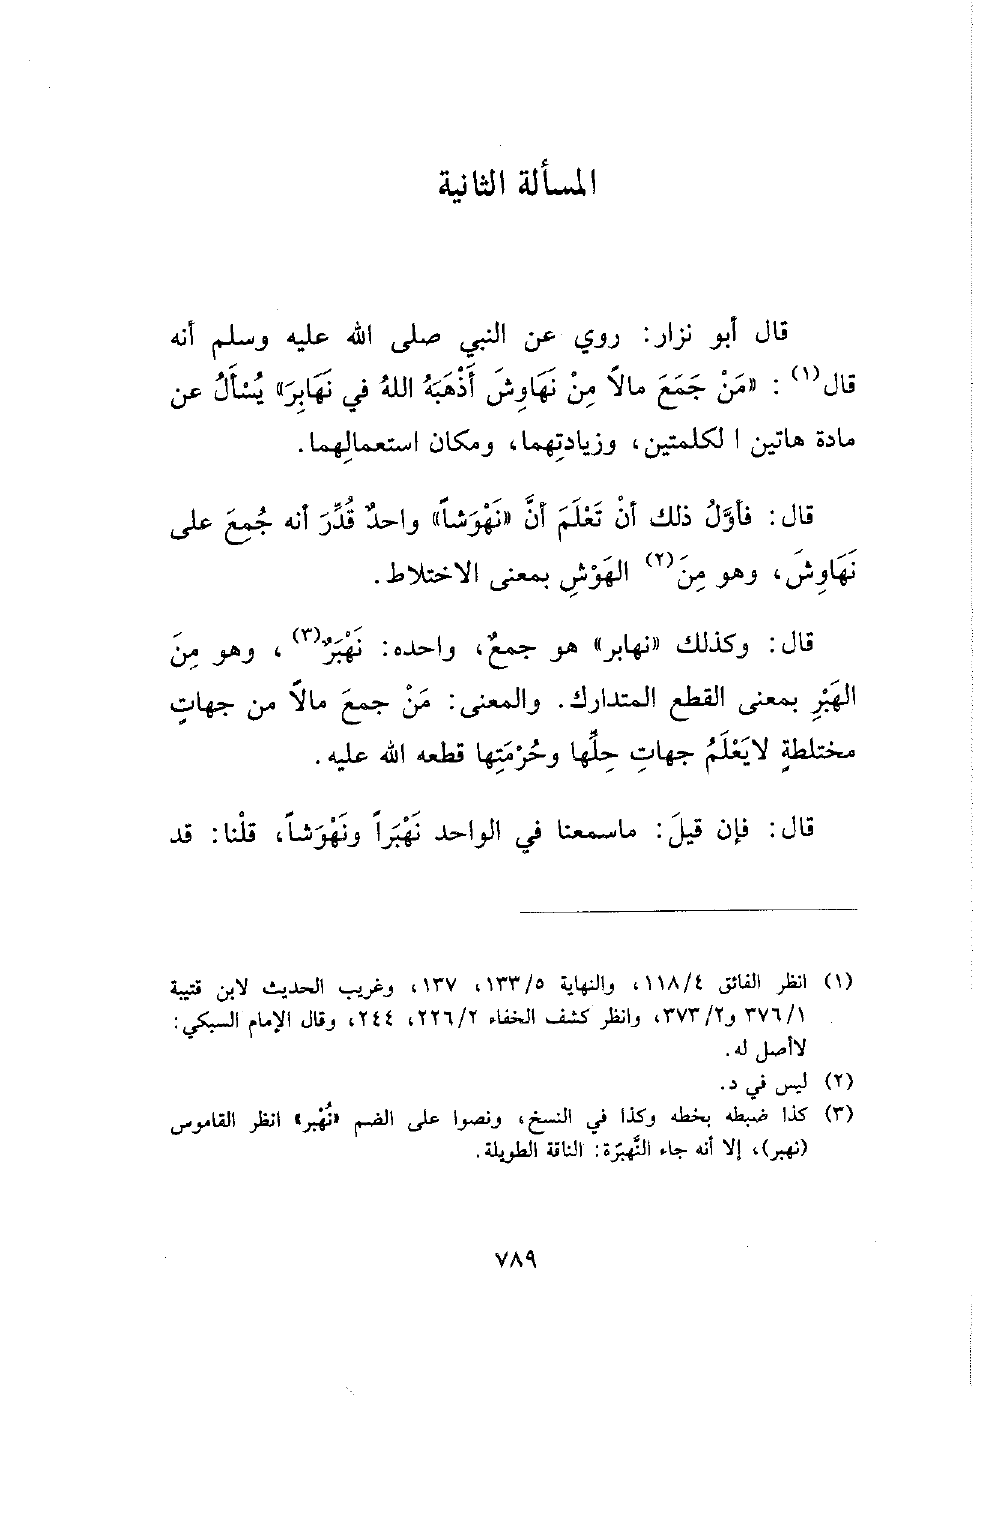 المسألة الثانية
قال أبو نزار: روي عن النبي صلى الله عليه وسلم أنه
قال(١) : «مَنْ جَمَعَ مالاً مِنْ نَهَاوِشَ أَذْهَبَهُ اللهُ في نَهَابِرَ» يُسْأَلُ عن
مادة هاتين ا لكلمتين، وزيادتِهما، ومكان استعمالِهما.
قال: فأوَّلُ ذلك أنْ تَعْلَمَ أنَّ «نَهْوَشاً» واحدٌ قُدِّرَ أنه جُمِعَ على
نَهَاوِشَ، وهو مِنَ(٢) الهَوْشِ بمعنى الاختلاط.
قال: وكذلك «نهابر» هو جمعٌ، واحده: نَهْبَرٌ(٣)، وهو مِنَ
الهَبْرِ بمعنى القطع المتدارك. والمعنى: مَنْ جمعَ مالاً من جهاتٍ
مختلطةٍ لايَعْلَمُ جهاتِ حِلِّها وحُرْمَتِها قطعه الله عليه.
قال: فإن قيلَ: ماسمعنا في الواحد نَهْبَراً ونَهْوَشاً، قلْنا: قد
(١) انظر الفائق ١١٨/٤، والنهاية ١٣٣/٥، ١٣٧، وغريب الحديث لابن قتيبة
٣٧٦/١ و٣٧٣/٢، وانظر كشف الخفاء ٢٢٦/٢، ٢٤٤، وقال الإمام السبكي:
لاأصل له.
(٢) ليس في د.
(٣) كذا ضبطه بخطه وكذا في النسخ، ونصوا على الضم «نُهْبر» انظر القاموس
(نهبر)، إلا أنه جاء النَّهبَرَة: الناقة الطويلة.
٧٨٩